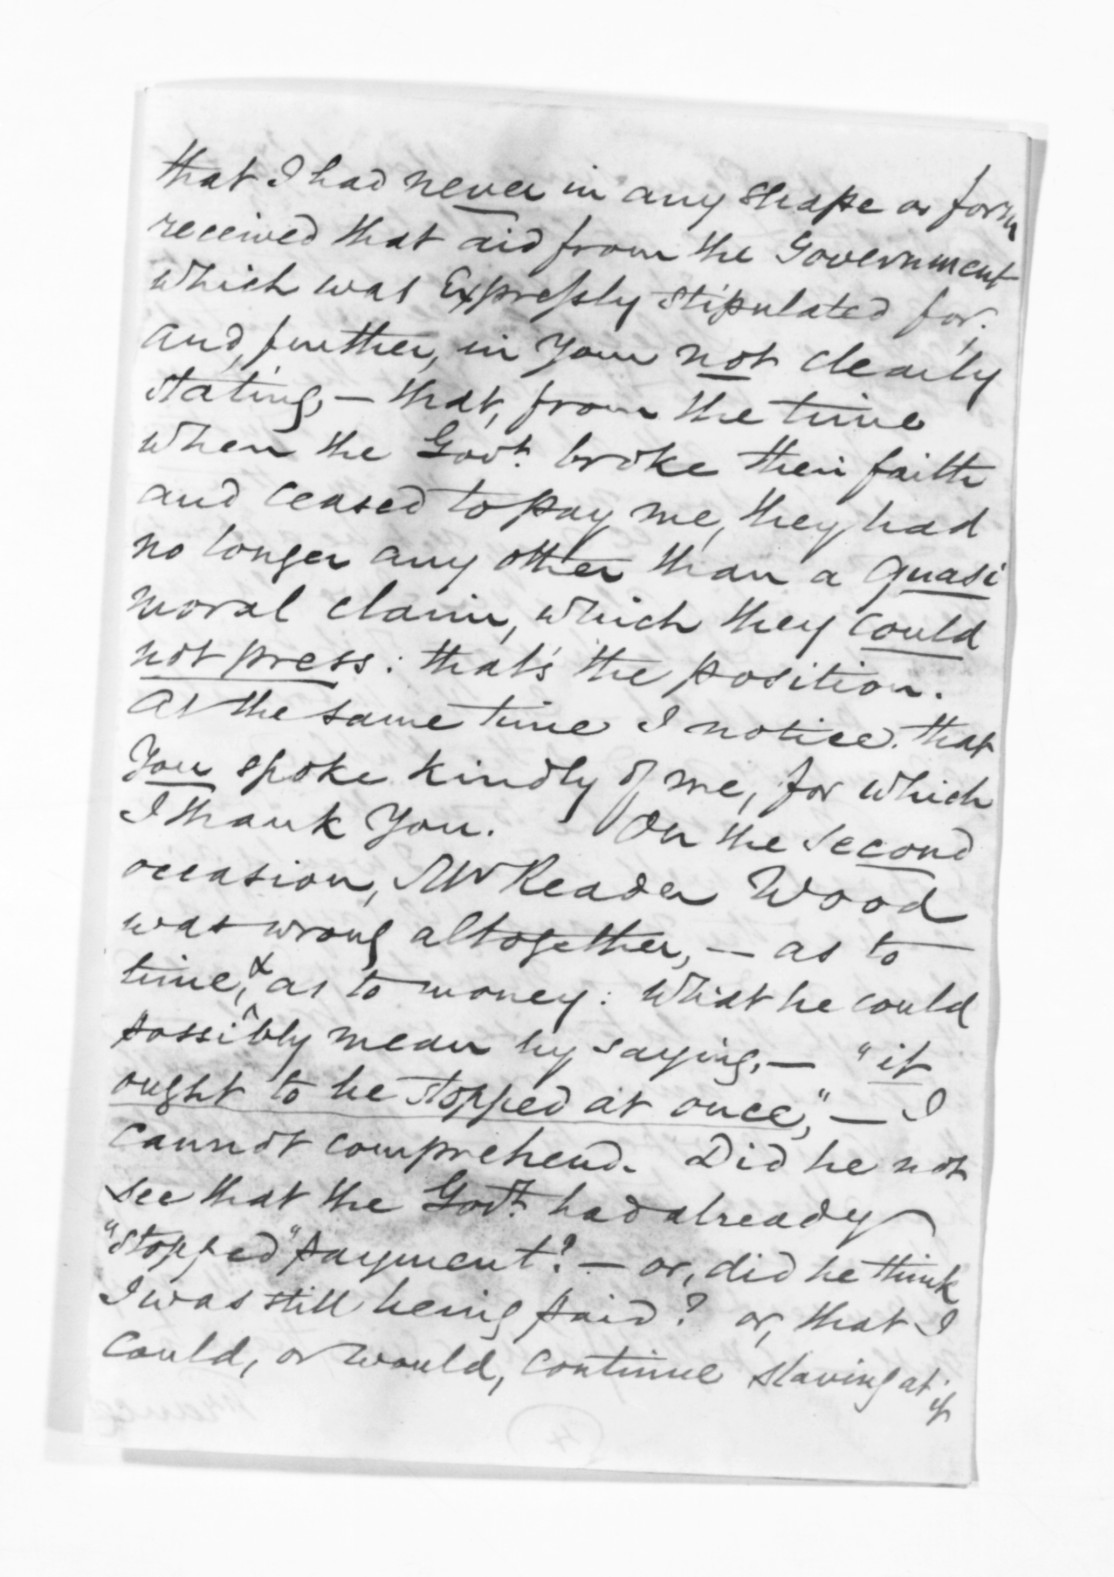 that I had never in any shape or form
received that aid from the Government
which was Expressly stipulated for;
and, further, in your not clearly
stating, — that, from the time
when the Govt. broke their faith
and ceased to pay me, they had
no longer any other than a quasi
moral claim, which they could
not press: that's the position.
At the same time I notice that
You spoke kindly of me, for which
I thank You. On the second
occasion, Mr Reader Wood
was wrong altogether, — as to
time, & as to money: What he could
possibly mean by saying, — "it
ought to be stopped at once," — I
cannot comprehend. Did he not
see that the Govt. had already
"stopped" payment? — or, did he think
I was still being paid? or, that I
could, or would, continue slaving at it
4